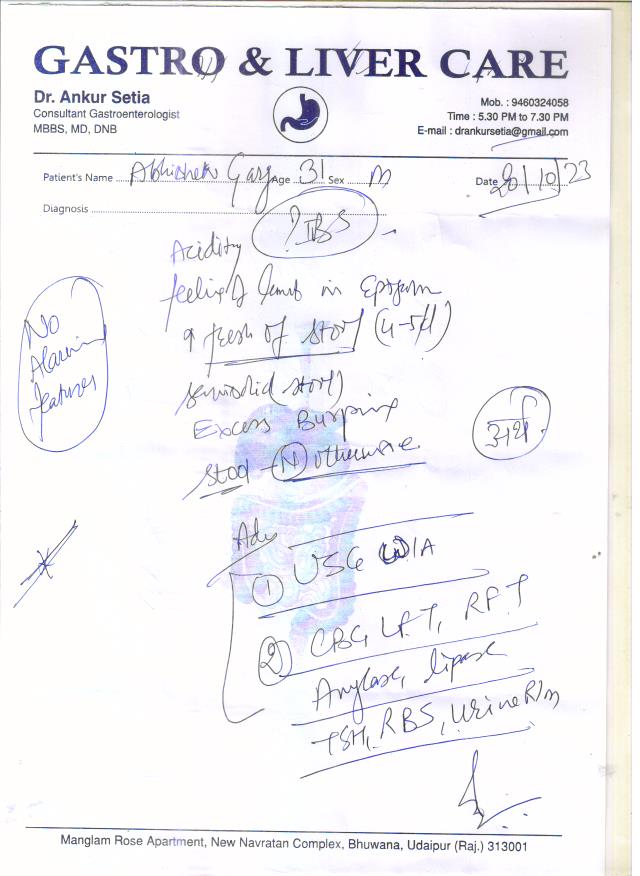 GASTRO & LIVER CARE
Dr. Ankur Setia
Consultant Gastroenterologist
MBBS, MD, DNB
Mob. : 9460324058
Time : 5.30 PM to 7.30 PM
E-mail : drankursetia@gmail.com
Patient's Name Abhishek Garg Age 31 Sex M Date 20/10/23
Diagnosis ? IBS
Acidity
feeling of in
of stool (4-5/d)
semisolid (stool)
Excess Burping
stool - (N) otherwise
No
Alarming
features
अर्थ
Adv
1 USG W/A
2 CBC, LFT, RFT
Amylase, lipase
TSH, RBS, Urine R/m
Manglam Rose Apartment, New Navratan Complex, Bhuwana, Udaipur (Raj.) 313001